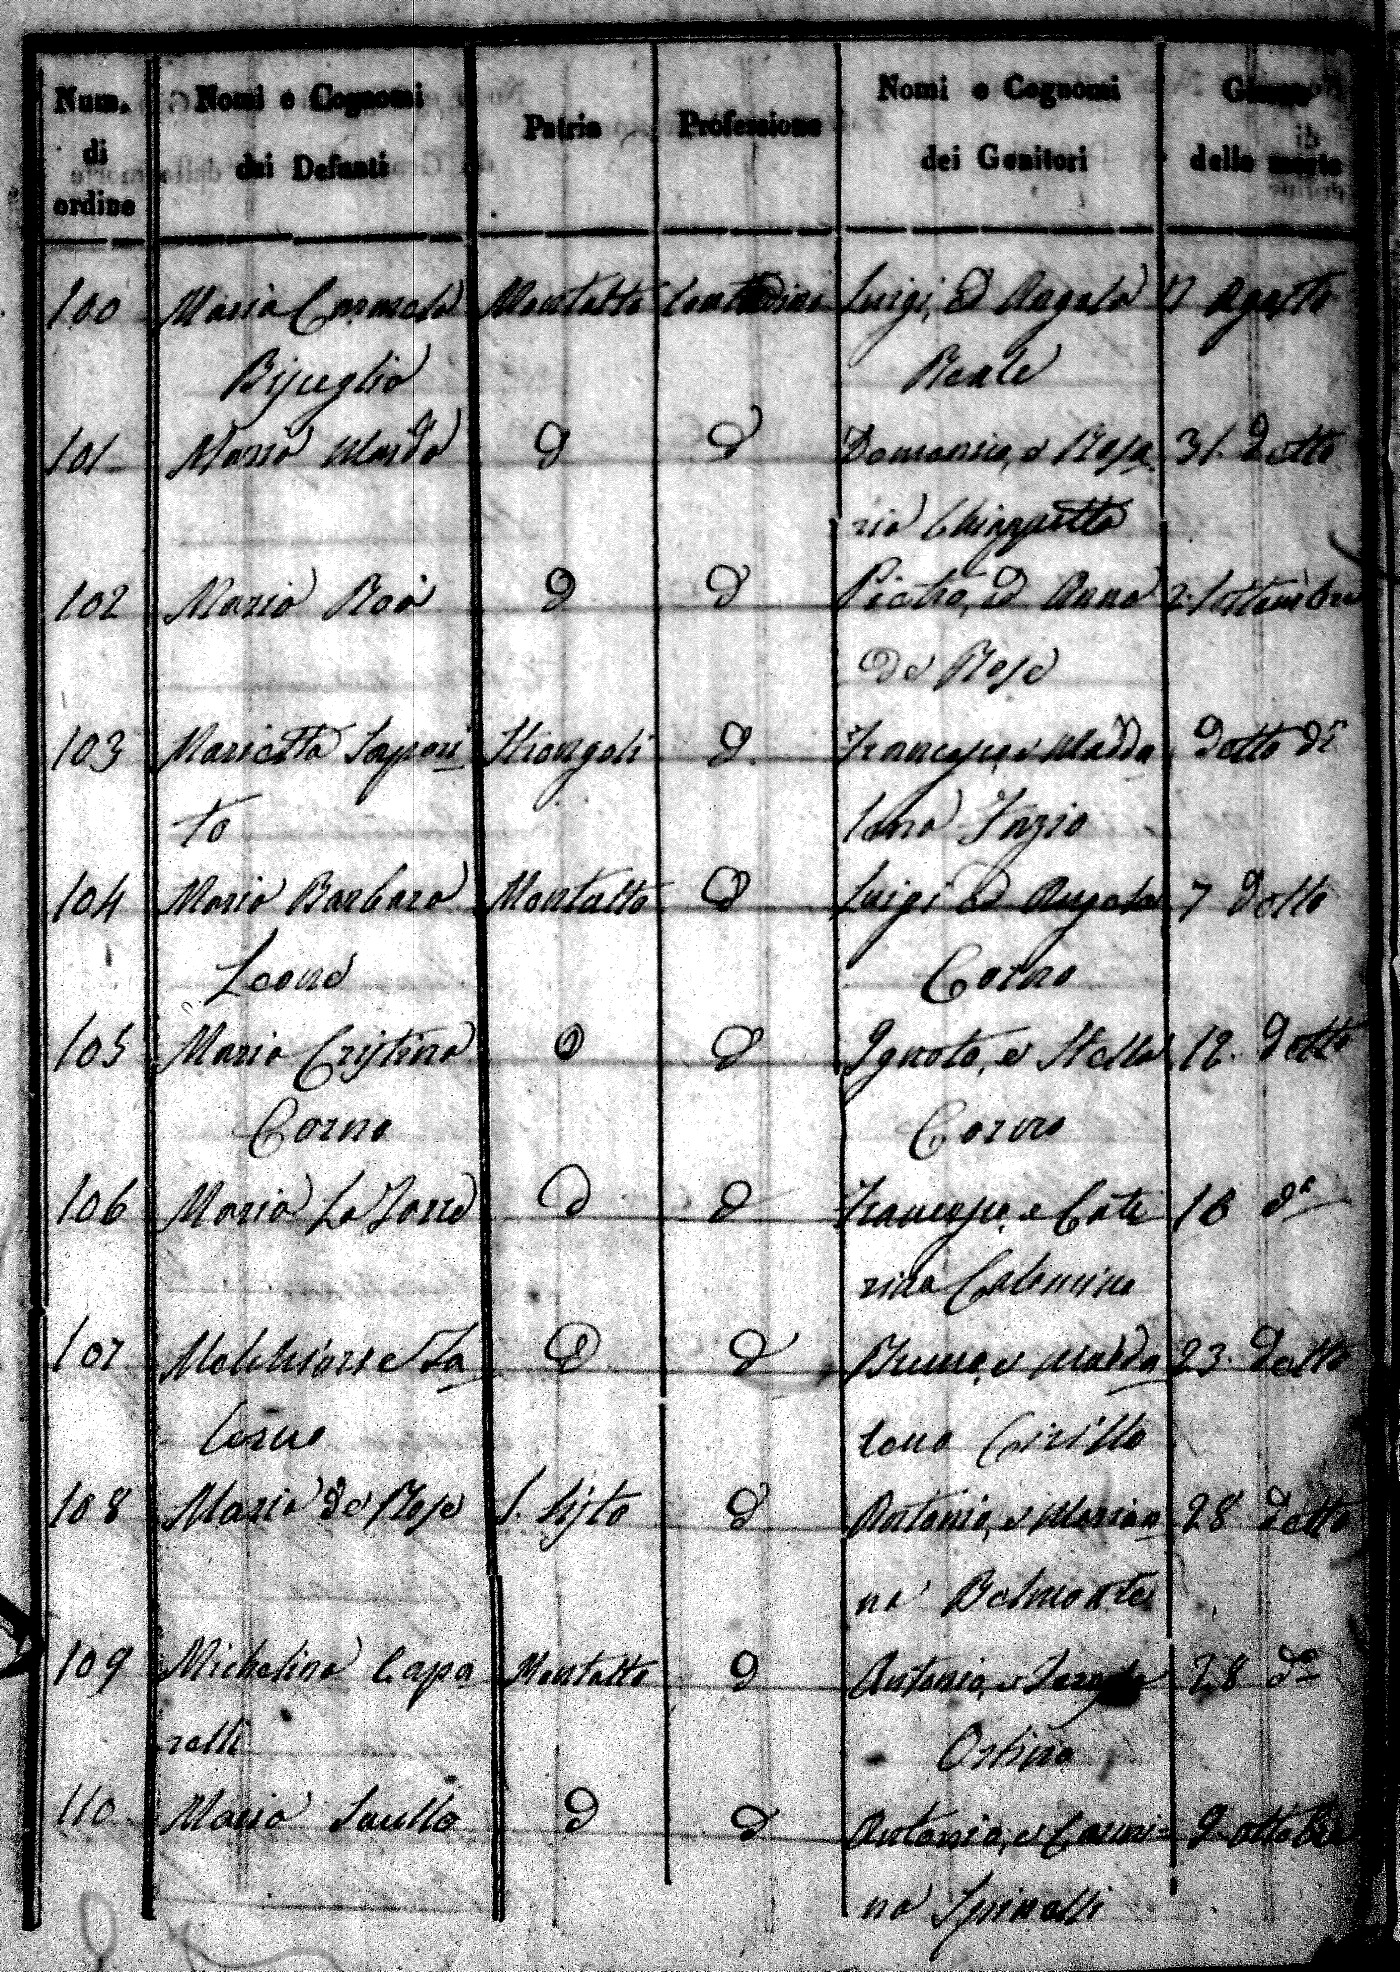 Num. di ordine
Nomi e Cognomi dei Defunti
Patria
Professione
Nomi e Cognomi dei Genitori
Giorno della morte
100 Maria Carmela Montalto Contadina Luigi, ed Angela 17 Agosto
Bisceglia Reale
101 Maria Marda D D Domenico, e Rosa 31. Detto
ria Chiappetta
102 Maria Roio D D Pietro, ed Anna 2. Settembre
De Rose
103 Marietta Sapori Strongoli D. Francesco, e Madda Detto Dì
to lena Inzio
104 Maria Barbara Montalto D Luigi ed Angela 7 Detto
Leone Corno
105 Maria Cristina D D Ignoto, e Stella 12. Detto
Corno Corno
106 Maria La Torre D D Francesco, e Cate 18 do
rina Calomino
107 Melchiorre Ja D D Bruno, e Madda 23. Detto
lena Cirillo
108 Maria de Rose S. Sisto D Antonio, e Marian 28 Detto
na Belmonte
109 Michelina Capa Montalto D Antonio, e 28 do
relli
110 Maria Saullo D D Antonio, e Carmi= 9 ottobre
na Spinelli